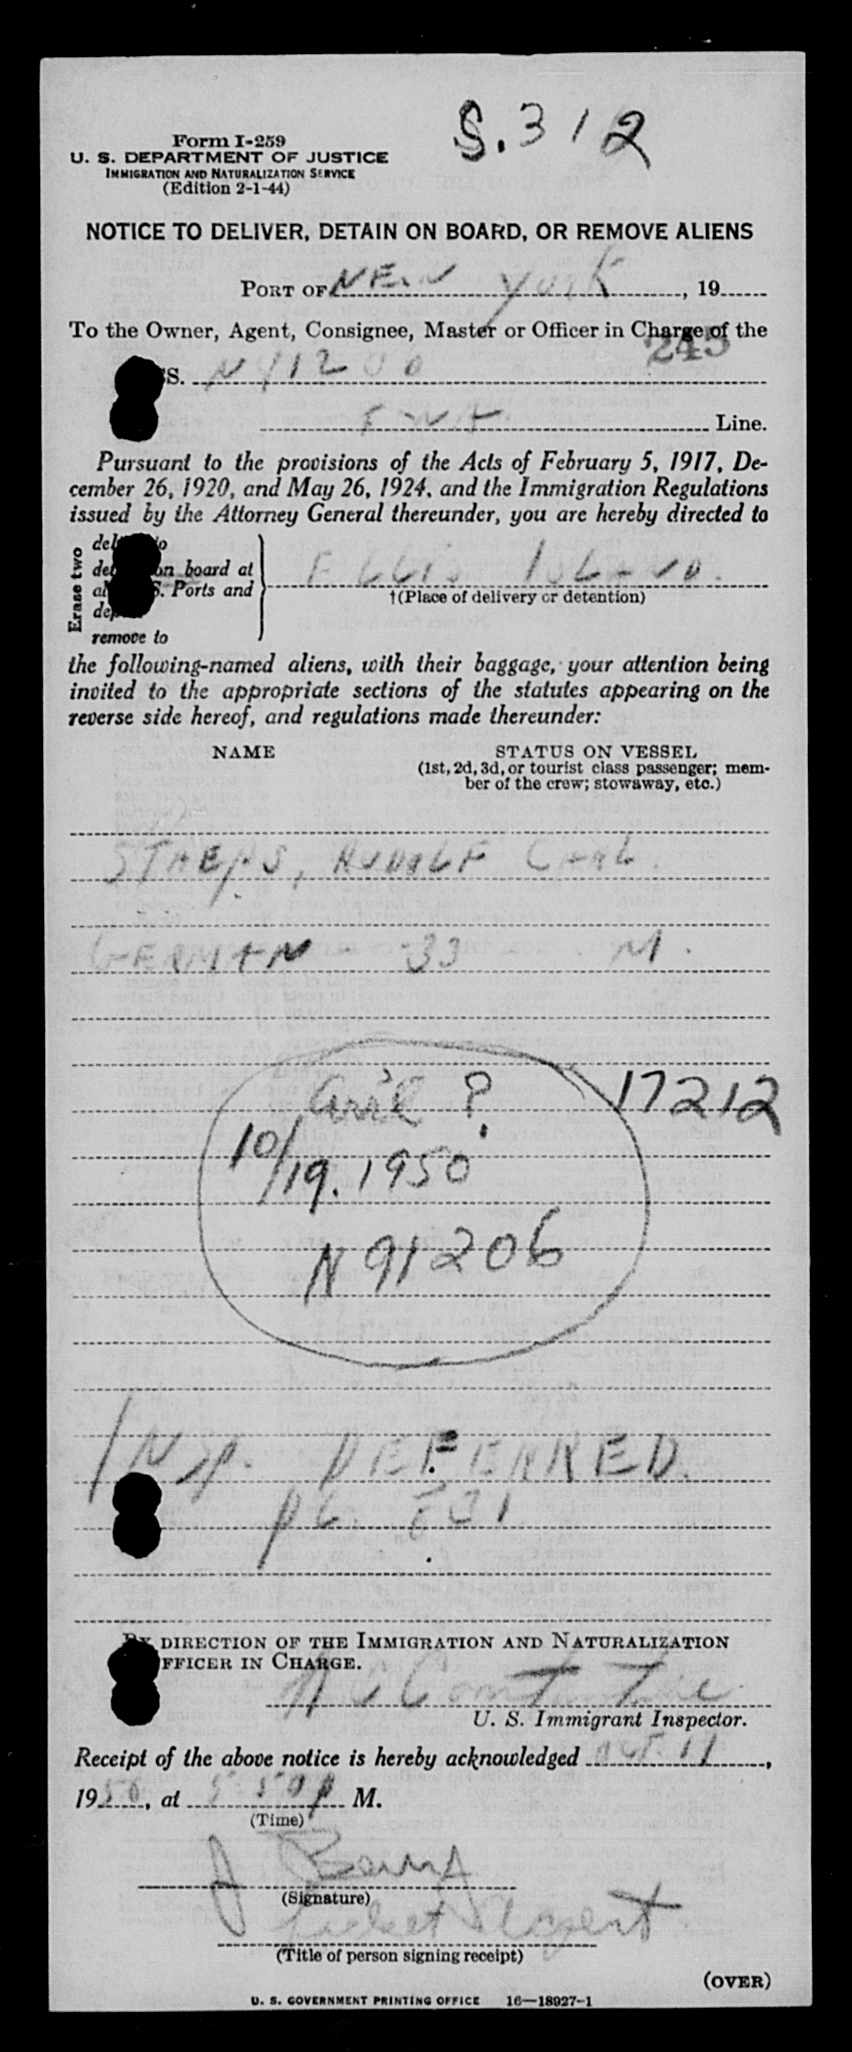 S.312
Form I-259
U. S. DEPARTMENT OF JUSTICE
IMMIGRATION AND NATURALIZATION SERVICE
(Edition 2-1-44)
NOTICE TO DELIVER, DETAIN ON BOARD, OR REMOVE ALIENS
PORT OF NEW York, 19
To the Owner, Agent, Consignee, Master or Officer in Charge of the
245
SS.
TWA Line.
Pursuant to the provisions of the Acts of February 5, 1917, De-
cember 26, 1920, and May 26, 1924, and the Immigration Regulations
issued by the Attorney General thereunder, you are hereby directed to
Erase two
on board at
S. Ports and
remove to
ELLIS ISLAND.
†(Place of delivery or detention)
the following-named aliens, with their baggage, your attention being
invited to the appropriate sections of the statutes appearing on the
reverse side hereof, and regulations made thereunder:
NAME
STATUS ON VESSEL
(1st, 2d, 3d, or tourist class passenger; mem-
ber of the crew; stowaway, etc.)
RUDOLF CARL
GERMAN - 33 M.
17212
Arr'l ?
10/19.1950
N91206
INSP. DEFERRED.
BY DIRECTION OF THE IMMIGRATION AND NATURALIZATION
OFFICER IN CHARGE.
U. S. Immigrant Inspector.
Receipt of the above notice is hereby acknowledged Oct. 11,
1950, at 5:50 P M.
(Time)
(Signature)
Ticket Agent
(Title of person signing receipt)
(OVER)
U. S. GOVERNMENT PRINTING OFFICE 16—18927-1